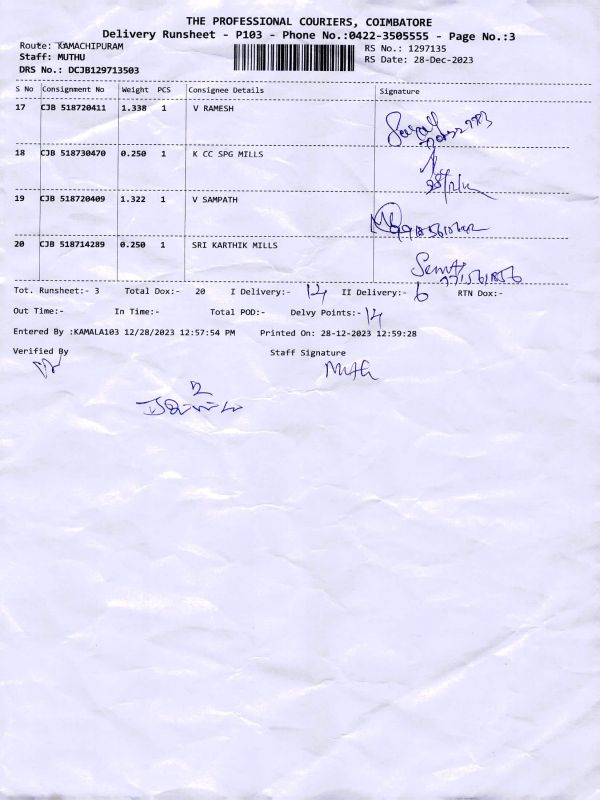 THE PROFESSIONAL COURIERS, COIMBATORE
Delivery Runsheet - P103 - Phone No.:0422-3505555 - Page No.:3
Route: KAMACHIPURAM
RS No.: 1297135
Staff: MUTHU
RS Date: 28-Dec-2023
DRS No.: DCJB129713503
S No Consignment No Weight PCS Consignee Details Signature
17 CJB 518720411 1.338 1 V RAMESH
18 CJB 518730470 0.250 1 K CC SPG MILLS
19 CJB 518720409 1.322 1 V SAMPATH
20 CJB 518714289 0.250 1 SRI KARTHIK MILLS
Tot. Runsheet:- 3 Total Dox:- 20 I Delivery:- 14 II Delivery:- 6 RTN Dox:-
Out Time:- In Time:- Total POD:- Delvy Points:- 14
Entered By :KAMALA103 12/28/2023 12:57:54 PM Printed On: 28-12-2023 12:59:28
Verified By Staff Signature